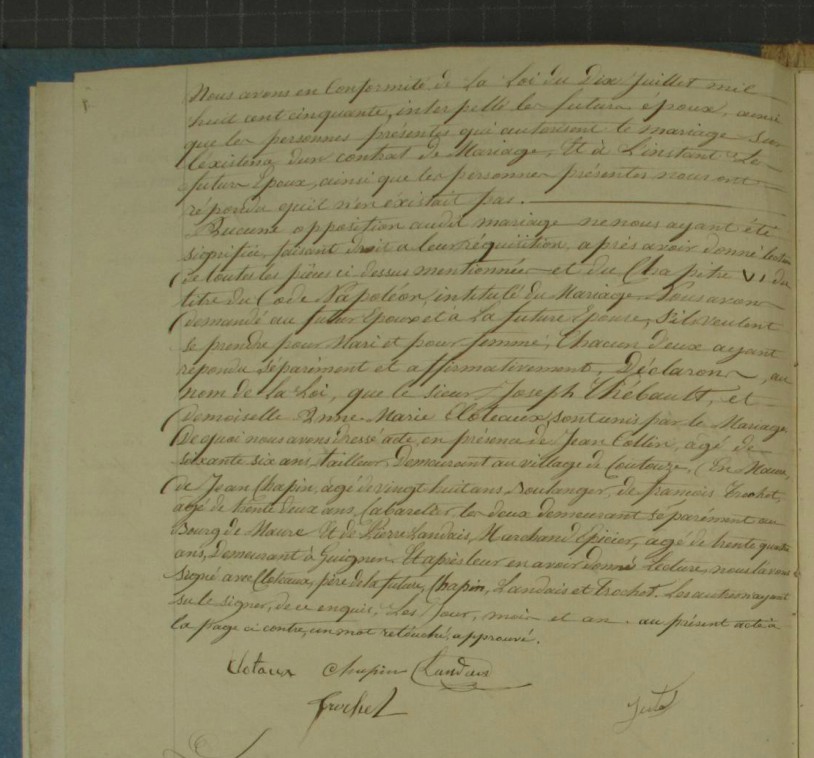 Nous avons en Conformité de La Loi du Dix Juillet mil
huit cent cinquante, interpellé les futurs epoux, ainsi
que les personnes présentes qui autorisent le mariage sur
l'existence d'un contrat de Mariage, Et à L'instant Les
futurs Epoux, ainsi que les personnes présentes nous ont
répondu qu'il n'en existait pas.
Aucune opposition audit mariage ne nous ayant été
signifiée, faisant droit a leur réquisition, après avoir donné lecture
de toutes les pièces ci dessus mentionnées et du Chapitre VI du
titre du Code Napoléon, intitulé du Mariage Nous avons
demandé au futur Epoux et à La future Epouse, S'ils veulent
se prendre pour Mari et pour femme; Chacun d'eux ayant
répondu Séparément et affirmativement, Déclarons, au
nom de La Loi, que le sieur Joseph Thébault, et
demoiselle Anne Marie Cloteaux, sont unis par le Mariage
De quoi nous avons dressé acte, en présence de Jean Collin, agé de
soixante six ans, tailleur, Demeurant au village de Coutouze, En Maure,
de Jean Chapin, agé de vingt huit ans, Boulanger, de François Trochet,
agé de trente deux ans, Cabaretier, les deux demeurant séparément au
Bourg de Maure Et de Pierre Landais, Marchand Epicier, agé de trente quatre
ans, Demeurant à Guignen Et après leur en avoir donné Lecture, nous l'avons
Signé avec Cloteaux, père de la future, Chapin, Landais et Trochet. Les autres n'ayant
su le signer, de ce enquis. Les Jour, mois et an. au présent acte à
la page ci contre, un mot retouché, approuvé.
Clotaux Chapin Landais
Trochet